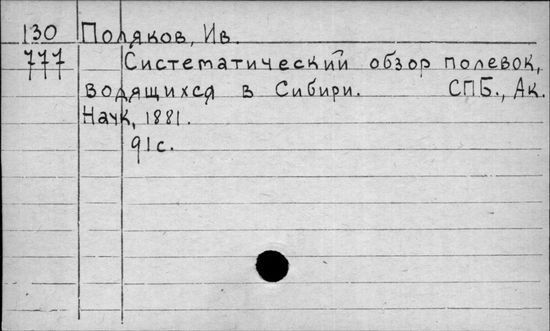 130 Поляков, Ив.
777 Систематический обзор полевок,
водящихся в Сибири. СПБ., Ак.
Наук, 1881.
91с.